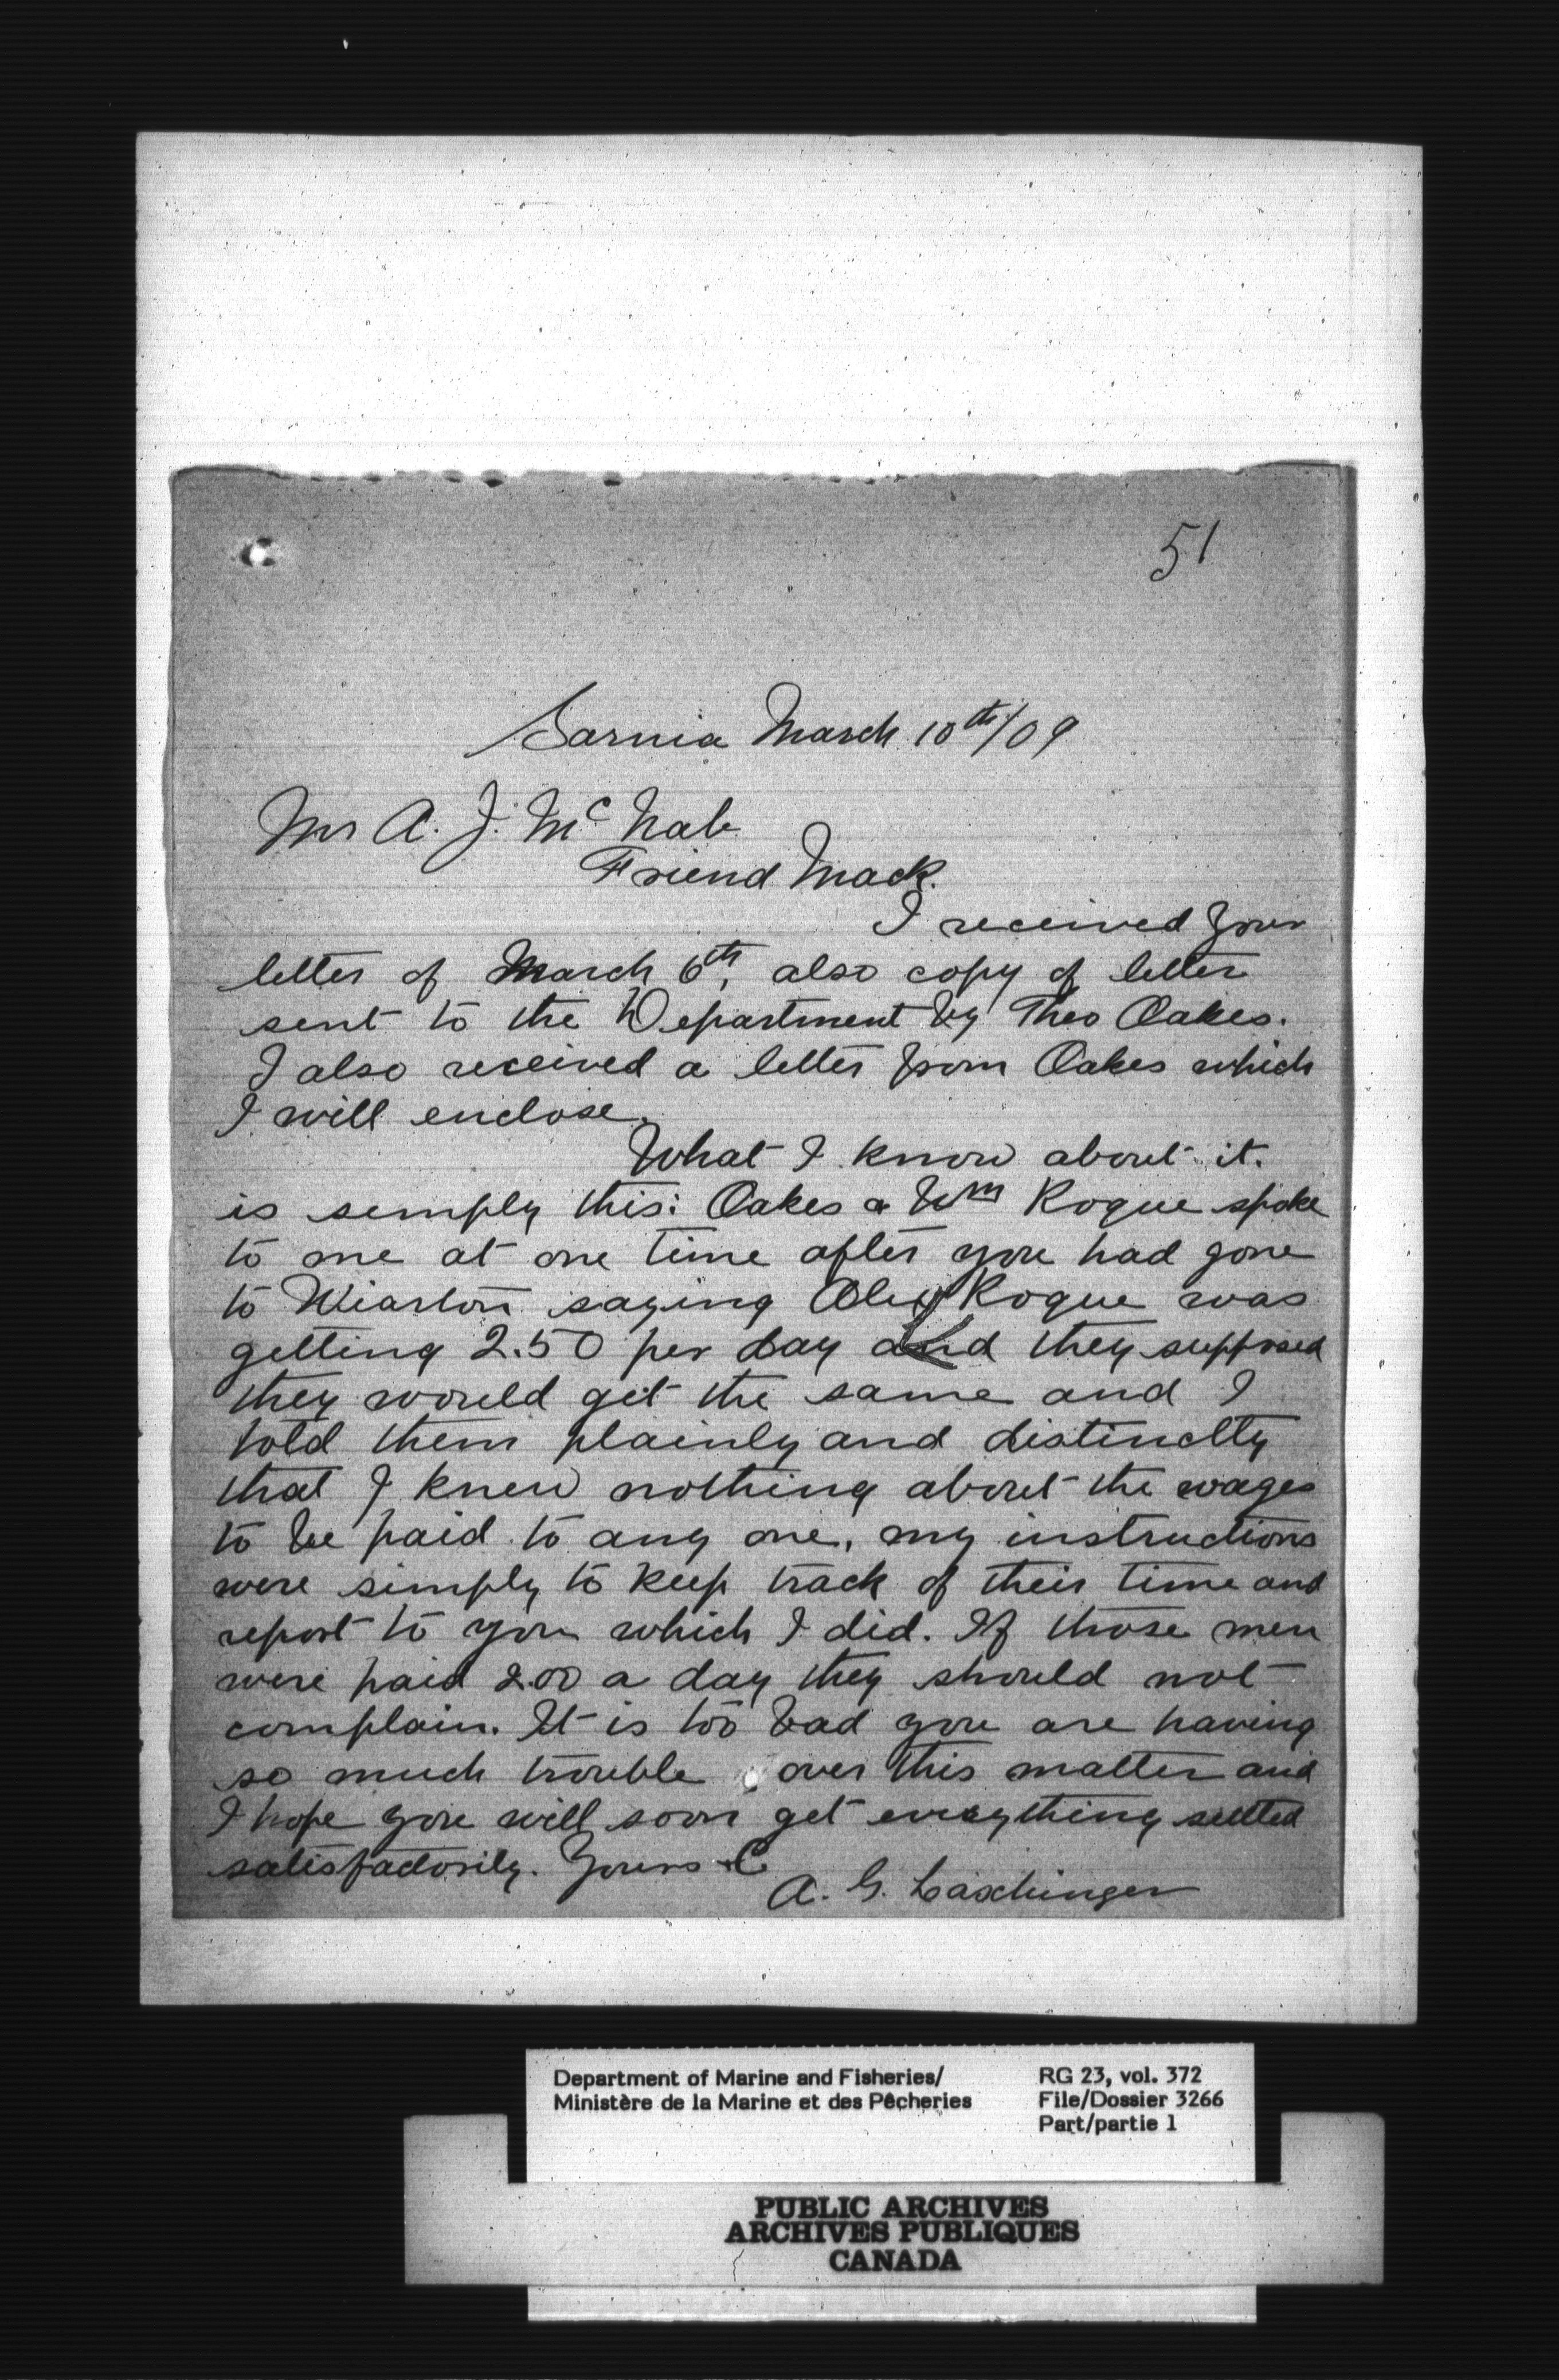 51
Sarnia March 10th/09
Mr A. J. McNab
Friend Mack.
I received your
letter of March 6th, also copy of letter
sent to the Department by Theo Oakes.
I also received a letter from Oakes which
I will enclose.
What I know about it.
is simply this: Oakes & Wm Rogue spoke
to me at one time after you had gone
to Wiarton saying Alex Rogue was
getting 2.50 per day and they supposed
they would get the same and I
told them plainly and distinctly
that I knew nothing about the wages
to be paid to any one, my instructions
were simply to keep track of their time and
report to you which I did. If those men
were paid 2.00 a day they should not
complain. It is too bad you are having
so much trouble over this matter and
I hope you will soon get everything settled
satisfactorily. Yours &C
A. G. Laschinger
Department of Marine and Fisheries/ RG 23, vol. 372
Ministère de la Marine et des Pêcheries File/Dossier 3266
Part/partie 1
PUBLIC ARCHIVES
ARCHIVES PUBLIQUES
CANADA